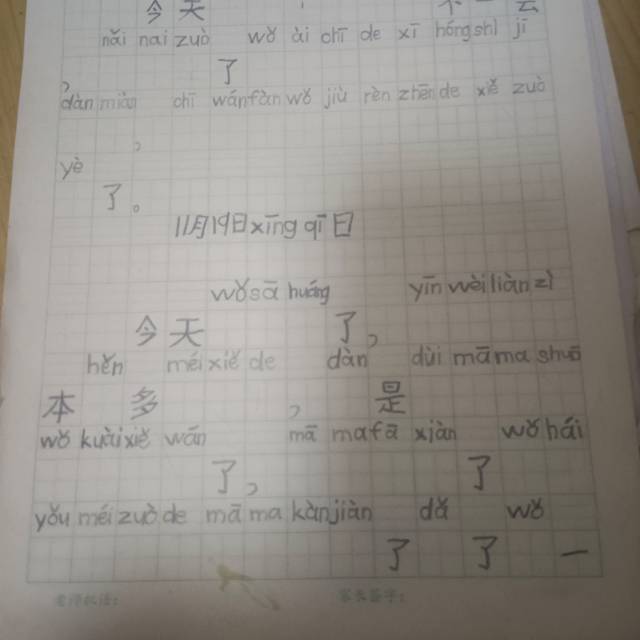 今天
nǎi nai zuò wǒ ài chī de xī hóng shì jī
了
dàn miàn chī wán fàn wǒ jiù rèn zhēn de xiě zuò
，
yè
了。
11月19日 xīng qī 日
wǒ sā huáng yīn wèi liàn zì
今天 了，
hěn méi xiě de dàn duì mā ma shuō
本 多 ， 是
wǒ kuài xiě wán mā ma fā xiàn wǒ hái
了， 了
yǒu méi zuò de mā ma kàn jiàn dǎ wǒ
了 了 一
老师批语： 家长签字：